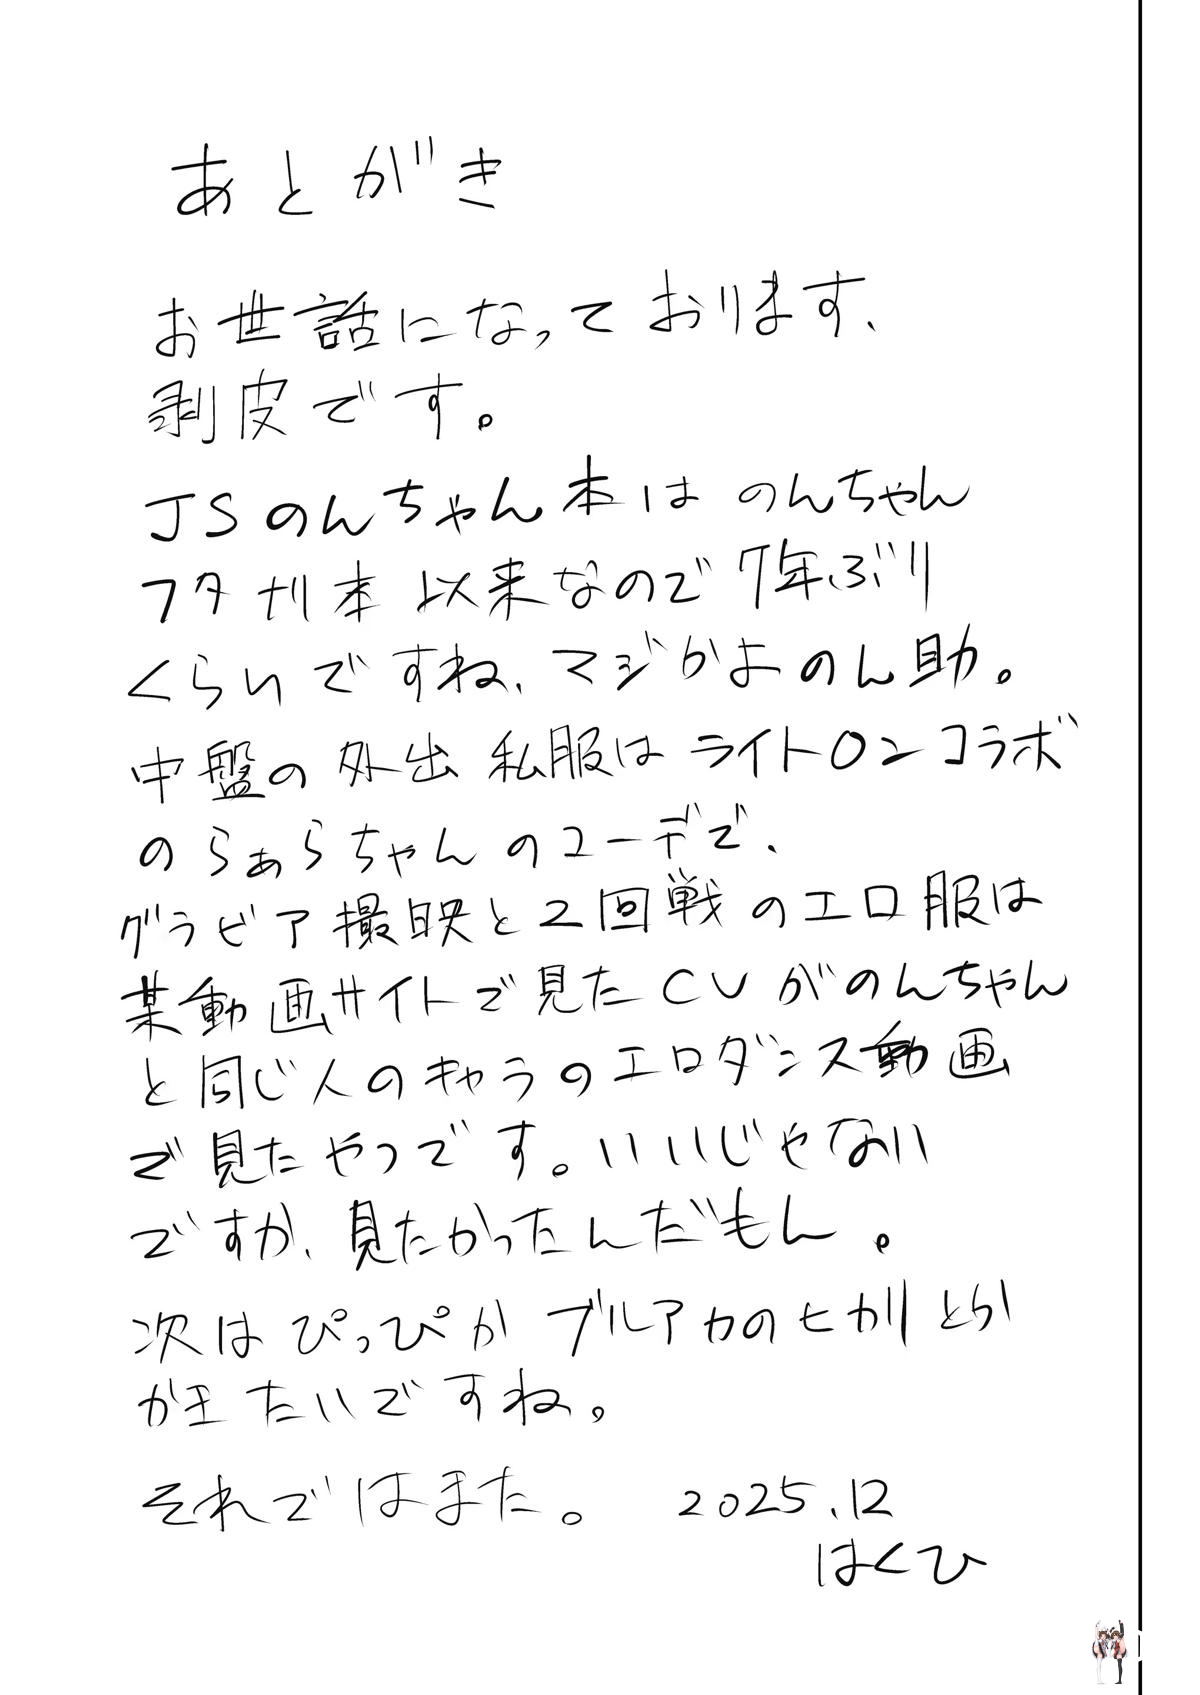 あとがき
お世話になっております、
剥皮です。
JSのんちゃん本はのんちゃん
フタナリ本以来なので7年ぶり
くらいですね、マジかよのん助。
中盤の外出私服はライト〇ンコラボ
のらぁらちゃんのコーデで、
グラビア撮映と2回戦のエロ服は
某動画サイトで見たCVがのんちゃん
と同じ人のキャラのエロダンス動画
で見たやつです。いいじゃない
ですか、見たかったんだもん。
次はぴっぴかブルアカのヒカリとか
かきたいですね。
それではまた。 2025.12
はくひ